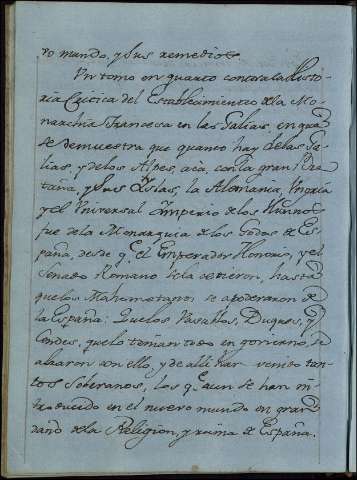 vo mundo, y sus remedios.
Un tomo en quarto contra la Histo
ria Critica del Establecimiento de la Mo
narchia Francesa en las Galias, en que
se demuestra que quanto hay de las Ga
lias, y de los Alpes, acá, con la gran Bre
taña, y sus Islas, la Alemania, Ungria
y el Universal Imperio de los Hunnos
fue de la Monarquia de los Godos de Es
paña, desde q.e el Emperador Honorio, y el
Senado Romano se la cedieron, hasta
que los Mahometanos se apoderaron de
la España: Que los Vasallos, Duques, y
Condes, que lo tenian todo en govierno, se
alzaron con ello, y de alli han venido tan
tos Soberanos, los q.e aun se han in
troducido en el nuevo mundo en gran
daño de la Religion, y ruina de España.